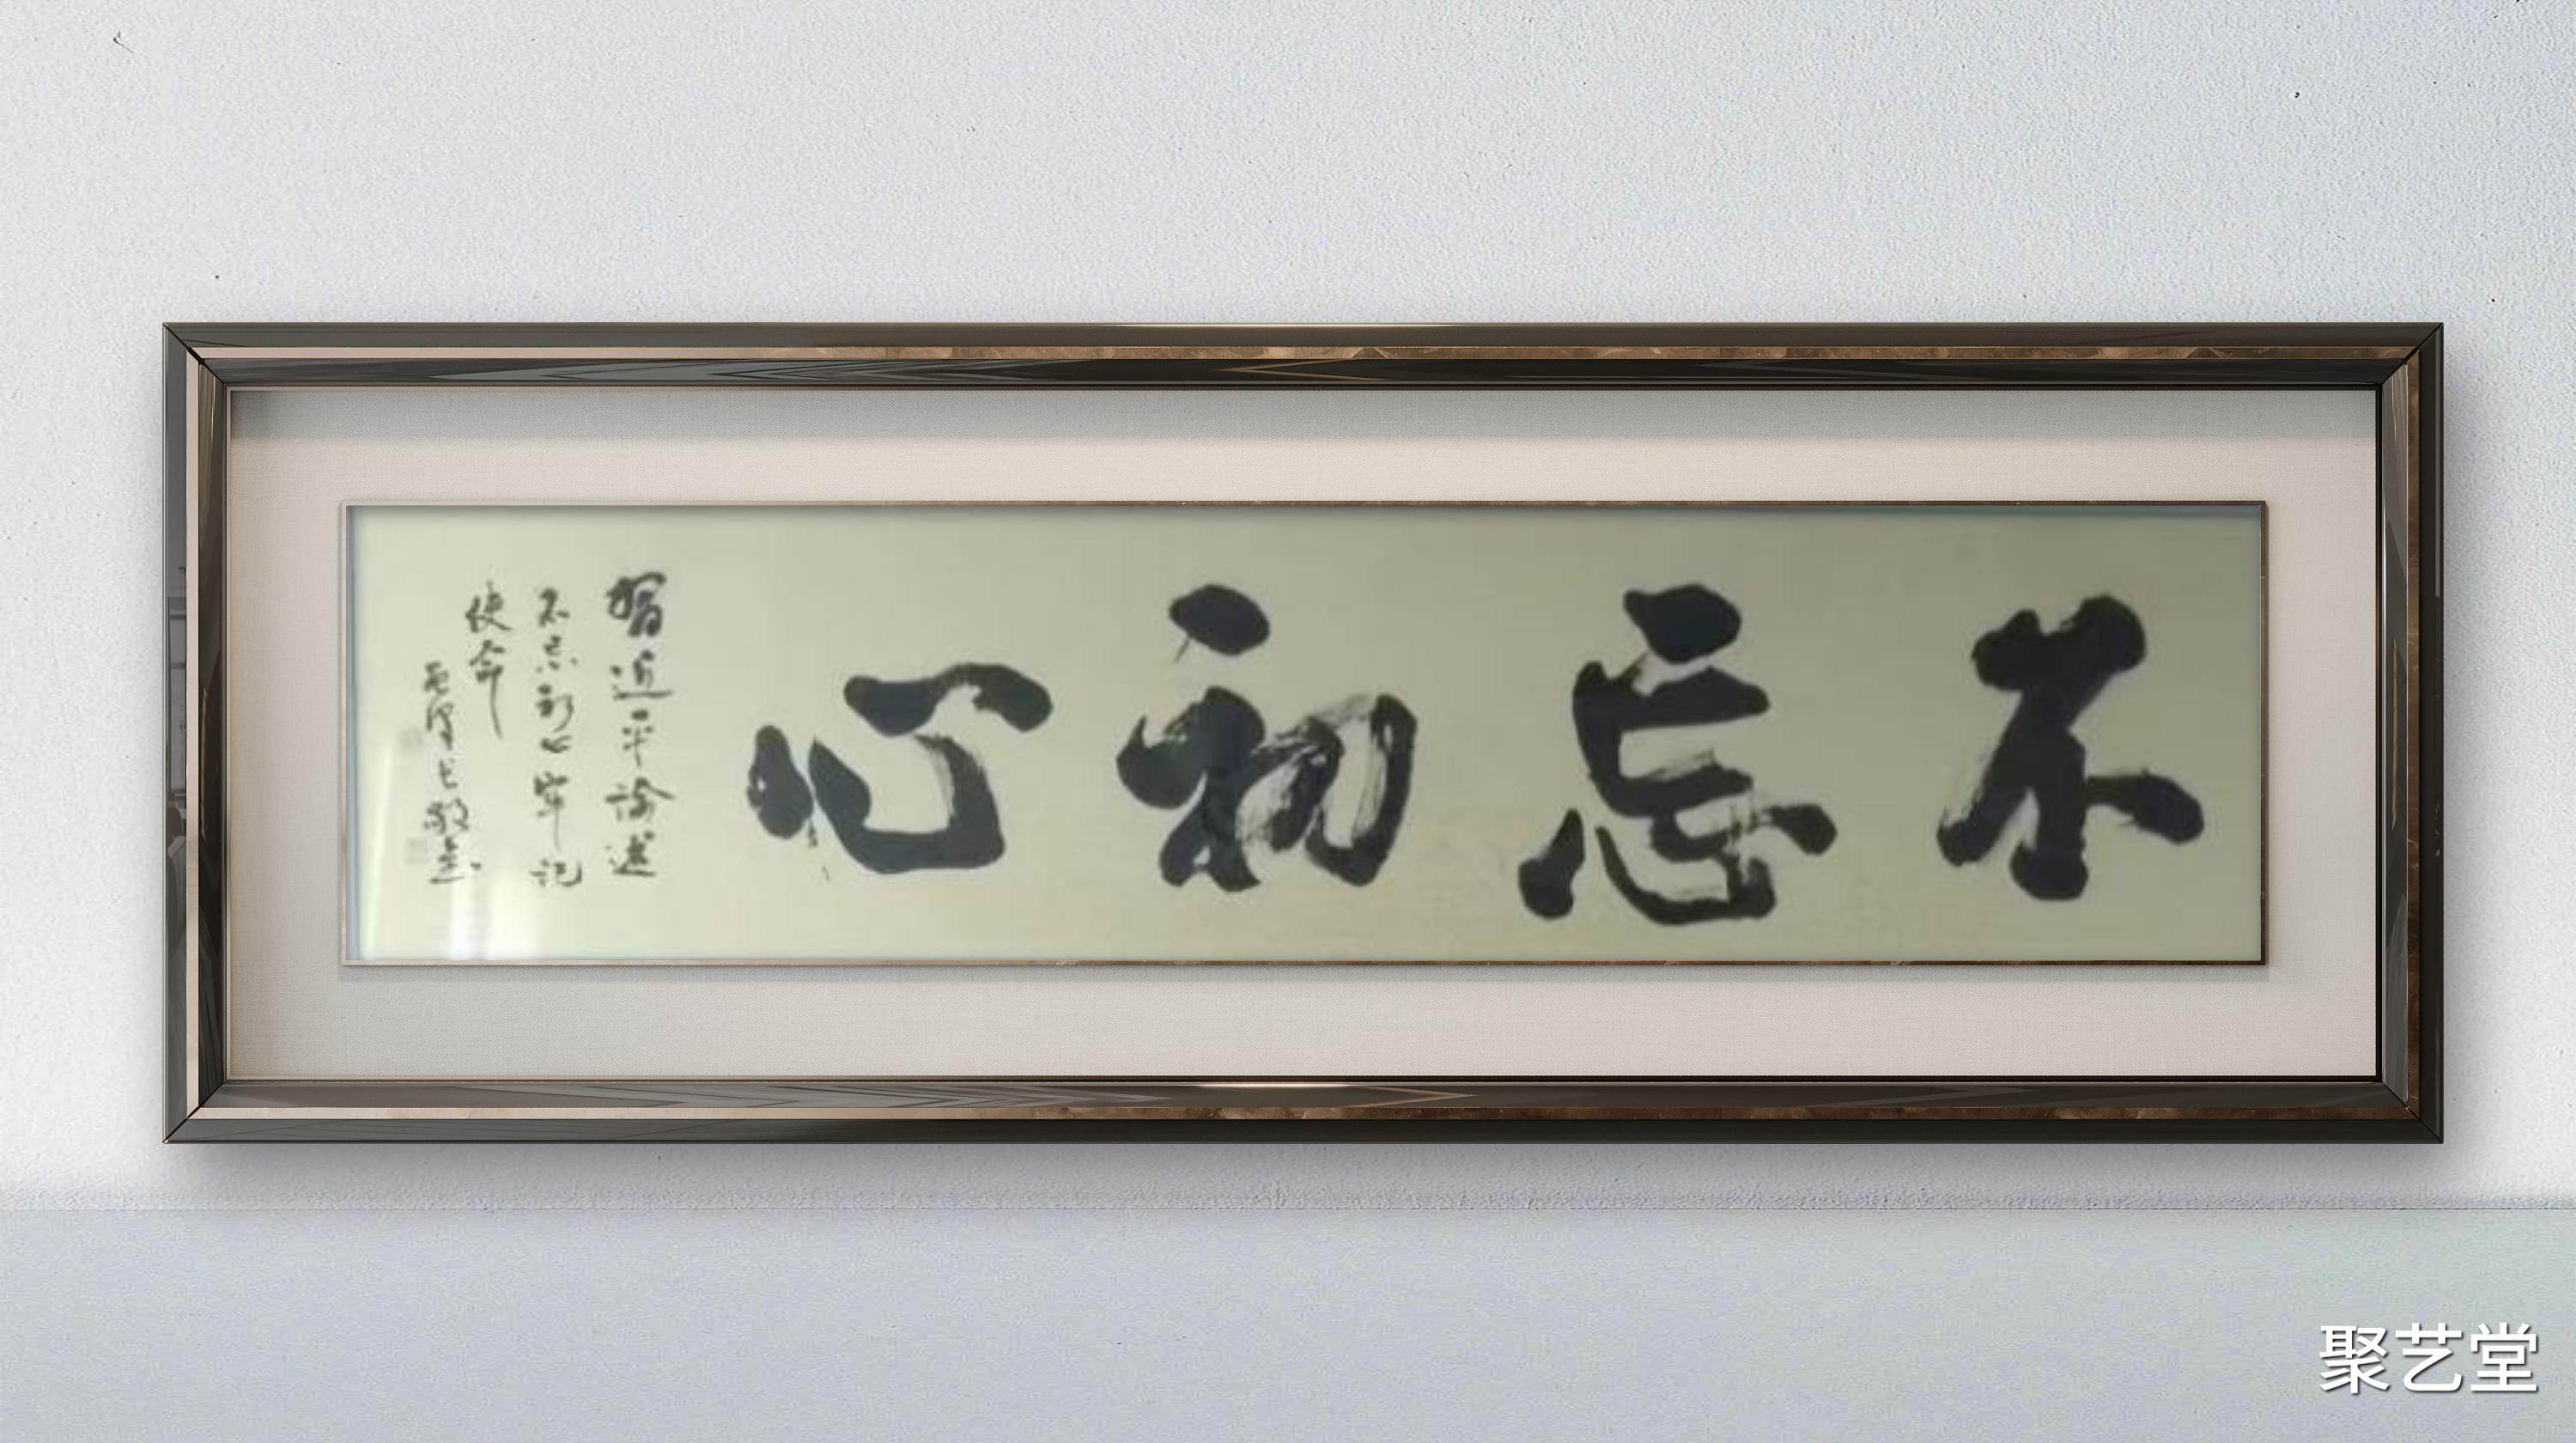 不忘初心
習近平論述
不忘初心牢記
使命
聚艺堂